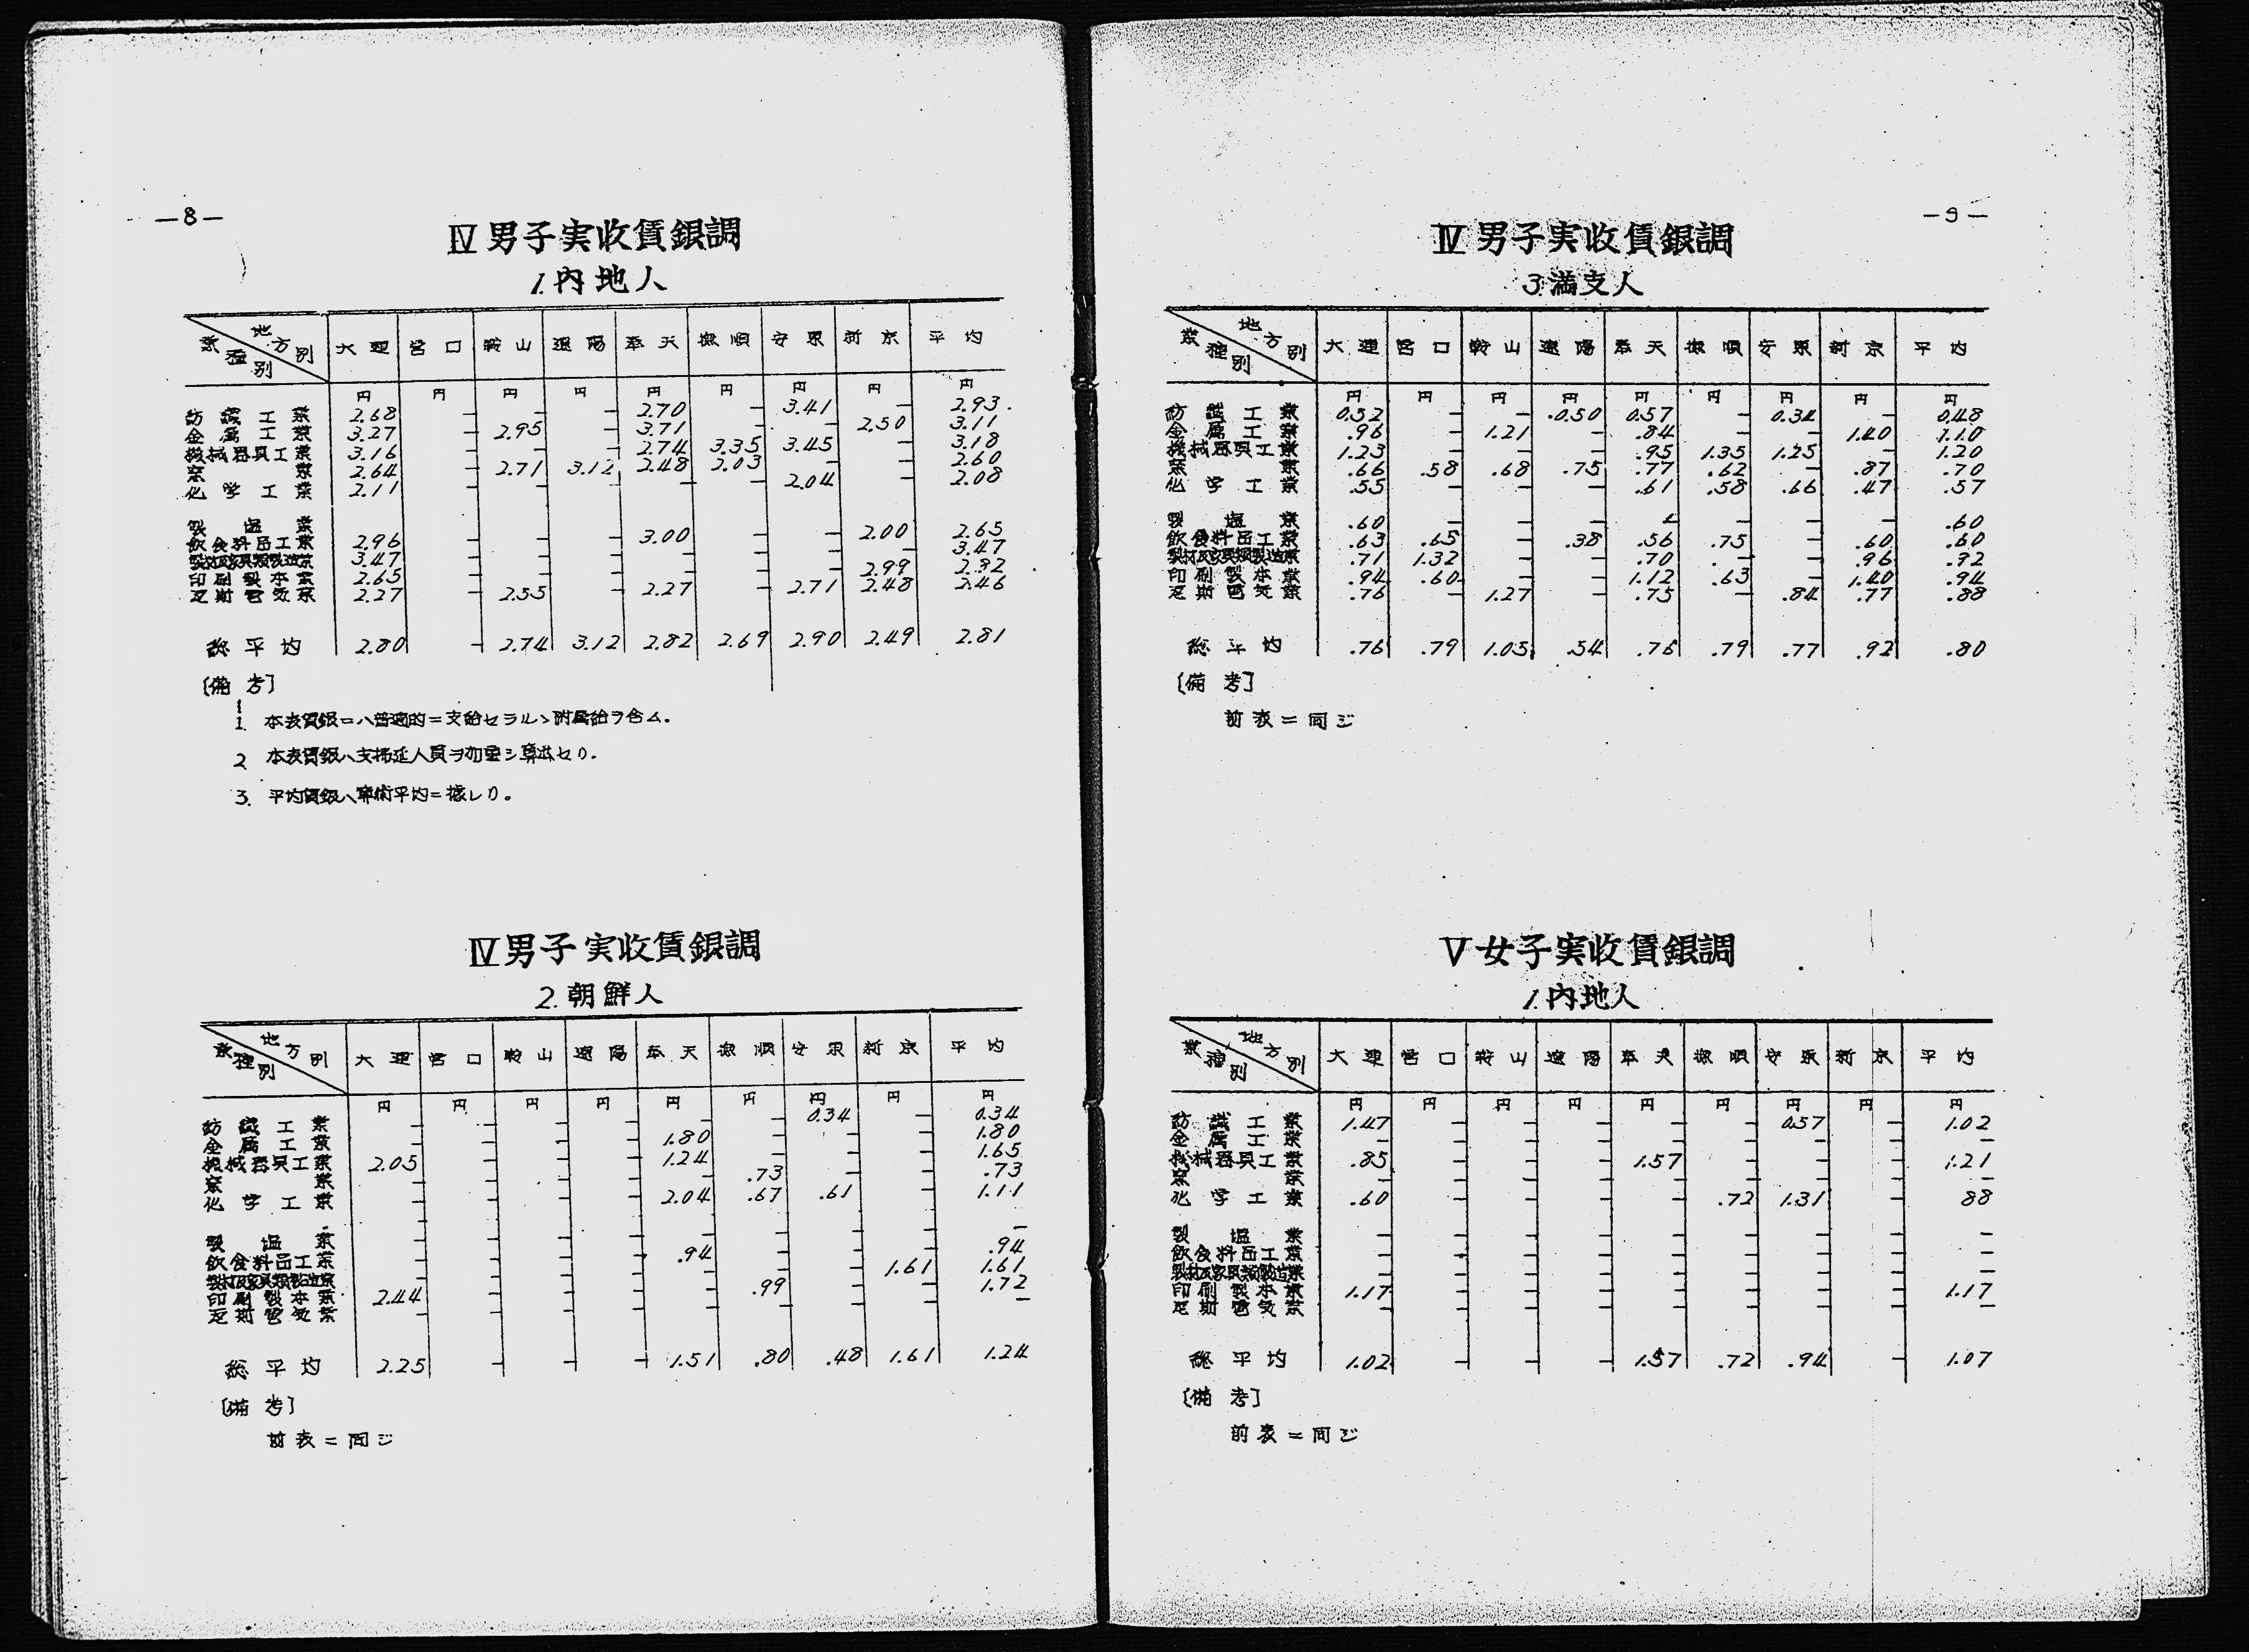 —8—
Ⅳ 男子実収賃銀調
1. 内地人
地方別 業種別 大連 営口 鞍山 遼陽 奉天 撫順 安東 新京 平均
円 円 円 円 円 円 円 円 円
紡織工業 2.68 — — — 2.70 — 3.41 — 2.93
金属工業 3.27 — 2.95 — 3.71 — — 2.50 3.11
機械器具工業 3.16 — — — 2.74 3.35 3.45 — 3.18
窯業 2.64 — 2.71 3.12 2.48 2.03 — — 2.60
化学工業 2.11 — — — — — 2.04 — 2.08
製塩業
飲食料品工業 2.96 — — — 3.00 — — 2.00 2.65
製材及家具類製造業 3.47 — — — — — — — 3.47
印刷製本業 2.65 — — — — — — 2.99 2.82
瓦斯電気業 2.27 — 2.55 — 2.27 — 2.71 2.48 2.46
総平均 2.80 — 2.74 3.12 2.82 2.69 2.90 2.49 2.81
〔備考〕
1. 本表賃銀ニハ普遍的ニ支給セラルゝ附属給ヲ含ム.
2. 本表賃銀ハ支払延人員ヲ加重シ算出セリ.
3. 平均賃銀ハ算術平均ニ據レリ。
Ⅳ 男子実収賃銀調
2. 朝鮮人
地方別 業種別 大連 営口 鞍山 遼陽 奉天 撫順 安東 新京 平均
円 円 円 円 円 円 円 円 円
紡織工業 — — — — — — 0.34 — 0.34
金属工業 — — — — 1.80 — — — 1.80
機械器具工業 2.05 — — — 1.24 — — — 1.65
窯業 — — — — — .73 — — .73
化学工業 — — — — 2.04 .67 .61 — 1.11
製塩業 — — — — — — — — —
飲食料品工業 — — — — .94 — — — .94
製材及家具類製造業 — — — — — — — 1.61 1.61
印刷製本業 2.44 — — — — .99 — — 1.72
瓦斯電気業 — — — — — — — — —
総平均 2.25 — — — 1.51 .80 .48 1.61 1.24
〔備考〕
前表ニ同ジ
—9—
Ⅳ 男子実収賃銀調
3. 満支人
地方別 業種別 大連 営口 鞍山 遼陽 奉天 撫順 安東 新京 平均
円 円 円 円 円 円 円 円 円
紡織工業 0.52 — — 0.50 0.57 — 0.34 — 0.48
金属工業 .96 — 1.21 — .84 — — 1.40 1.10
機械器具工業 1.23 — — — .95 1.35 1.25 — 1.20
窯業 .66 .58 .68 .75 .77 .62 — .87 .70
化学工業 .55 — — — .61 .58 .66 .47 .57
製塩業 .60 — — — — — — — .60
飲食料品工業 .63 .65 — .38 .56 .75 — .60 .60
製材及家具類製造業 .71 1.32 — — .70 — — .96 .92
印刷製本業 .94 .60 — — 1.12 .63 — 1.40 .94
瓦斯電気業 .76 — 1.27 — .75 — .84 .77 .88
総平均 .76 .79 1.05 .54 .76 .79 .77 .92 .80
〔備考〕
前表ニ同ジ
Ⅴ 女子実収賃銀調
1. 内地人
地方別 業種別 大連 営口 鞍山 遼陽 奉天 撫順 安東 新京 平均
円 円 円 円 円 円 円 円 円
紡織工業 1.47 — — — — — 0.57 — 1.02
金属工業 — — — — — — — — —
機械器具工業 .85 — — — 1.57 — — — 1.21
窯業 — — — — — — — — —
化学工業 .60 — — — — .72 1.31 — 88
製塩業 — — — — — — — — —
飲食料品工業 — — — — — — — — —
製材及家具類製造業 — — — — — — — — —
印刷製本業 1.17 — — — — — — — 1.17
瓦斯電気業 — — — — — — — — —
総平均 1.02 — — — 1.57 .72 .94 — 1.07
〔備考〕
前表ニ同ジ